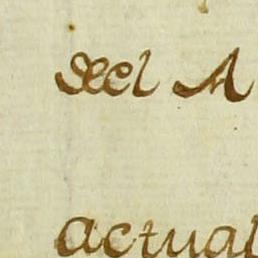 del A
actual